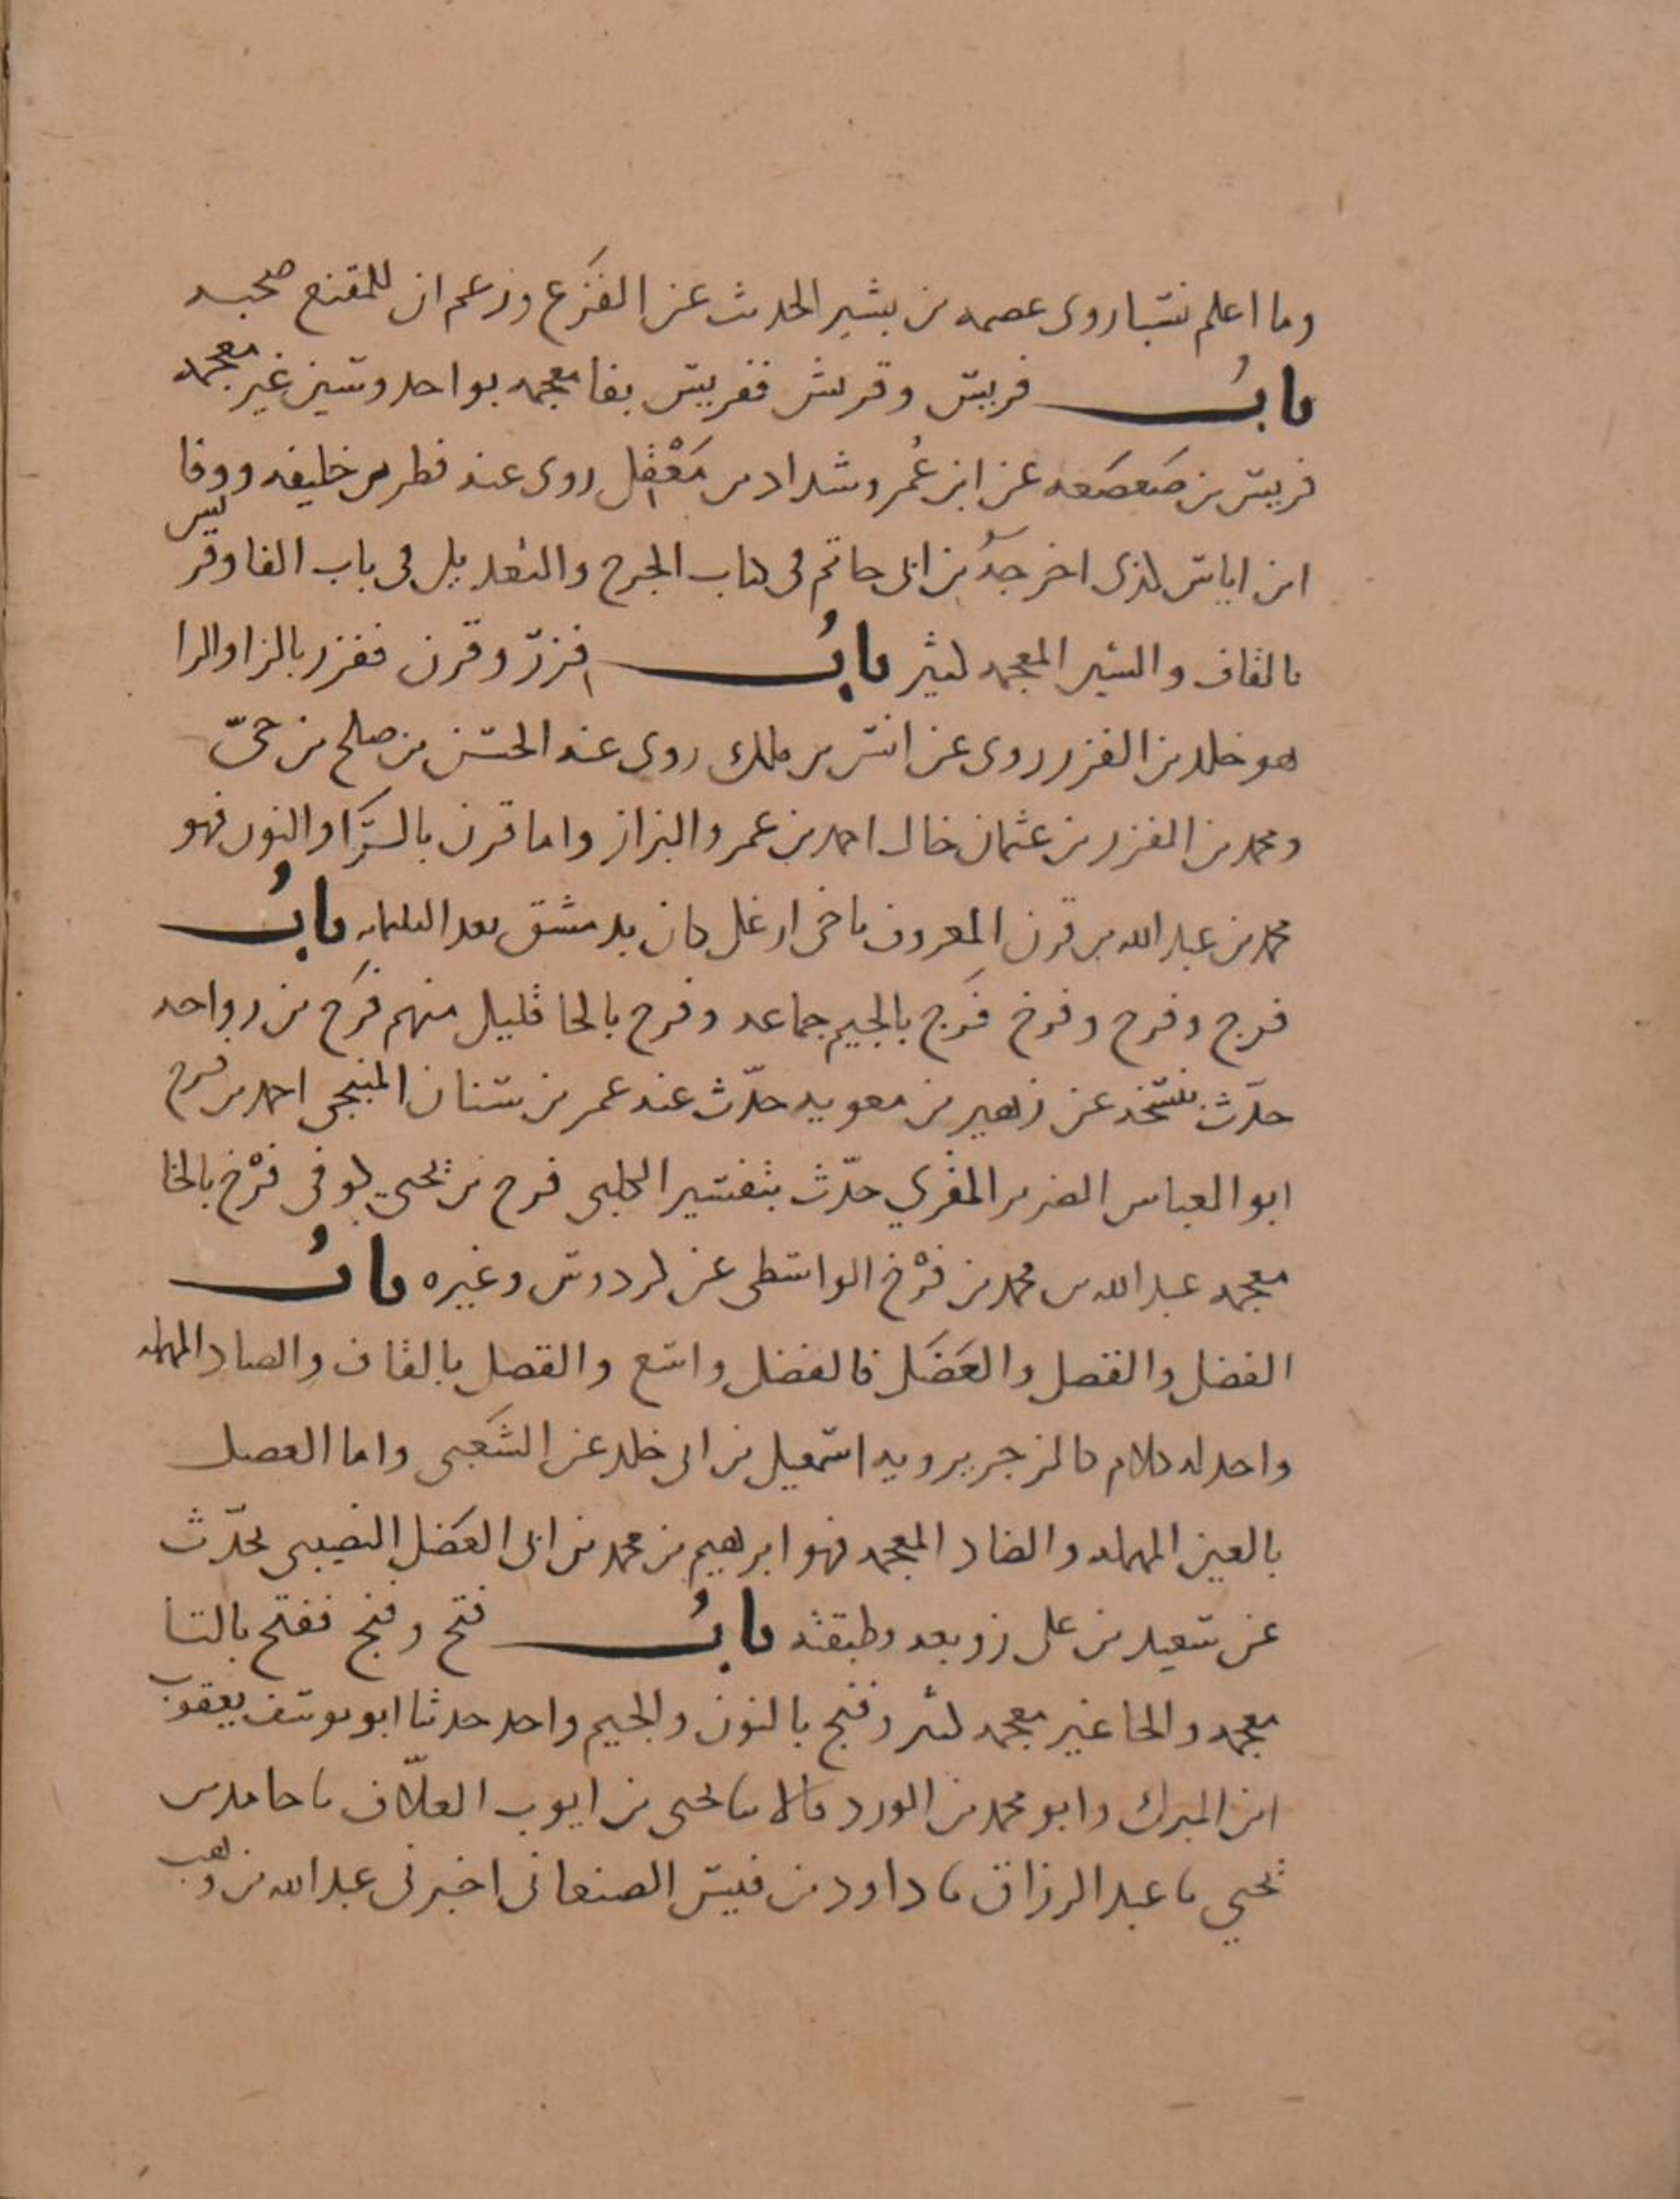 وما اعلم نسبا روى عصمه بن بشير الحديث عن الفزع وزعم ان للمقنع صحبه
باب فريس وقريش ففريس بفا معجمه بواحد وسين غير معجمه
فريس بن صعصعه عن ابن عُمر وشداد بن مَعْقل روى عنه فطر بن خليفه ووفا
ابن اياس الذى اخرجه بن ابى حاتم فى كتاب الجرح والتعديل فى باب الفا وقريش
بالقاف والشين المعجمه كثير باب فزر وقرن ففزر بالزا والرا
هو خلد بن الفزر روى عن انس بن ملك روى عنه الحسن بن صلح بن حىّ
ومحمد بن الفزر بن عثمان خال احمد بن عمرو البزاز واما قرن بالرا والنون فهو
محمد بن عبد الله بن قرن المعروف باخى ارغل كان بدمشق بعد الثلثمايه باب
فرج وفرح وفرخ فَرج بالجيم جماعه وفرح بالحا قليل منهم فرَح بن رواحه
حدّث بنسخه عن زهير بن معويه حدّث عنه عمر بن سنان المنبجى احمد بن فرح
ابو العباس الضرير المقري حدّث بتفسير الكلبى فرح بن يحيى كوفى فرْخ بالخا
معجمه عبد الله بن محمد بن فرْخ الواسطى عن كردوس وغيره باب
الفضل والقصل والعَضَل فالفضل واسع والقصل بالقاف والصاد المهمله
واحد له كلام كالزجر يرويه اسمعيل بن ابى خلد عن الشَعبى واما العضل
بالعين المهمله والضاد المعجمه فهو ابرهيم بن محمد بن ابى العَضَل النصيبى يحدّث
عن سعيد بن على زوبعه وطبقته باب فتح وفنج ففتح بالتا
معجمه والحا غير معجمه كثير وفنج بالنون والجيم واحد حدثنا ابو يوسف يعقوب
ابن المبرك وابو محمد بن الورد قالا ثنا يحيى بن ايوب العلّاف نا حامد بن
يحيي نا عبد الرزاق نا داود بن قيس الصنعانى اخبرنى عبد الله بن وهب